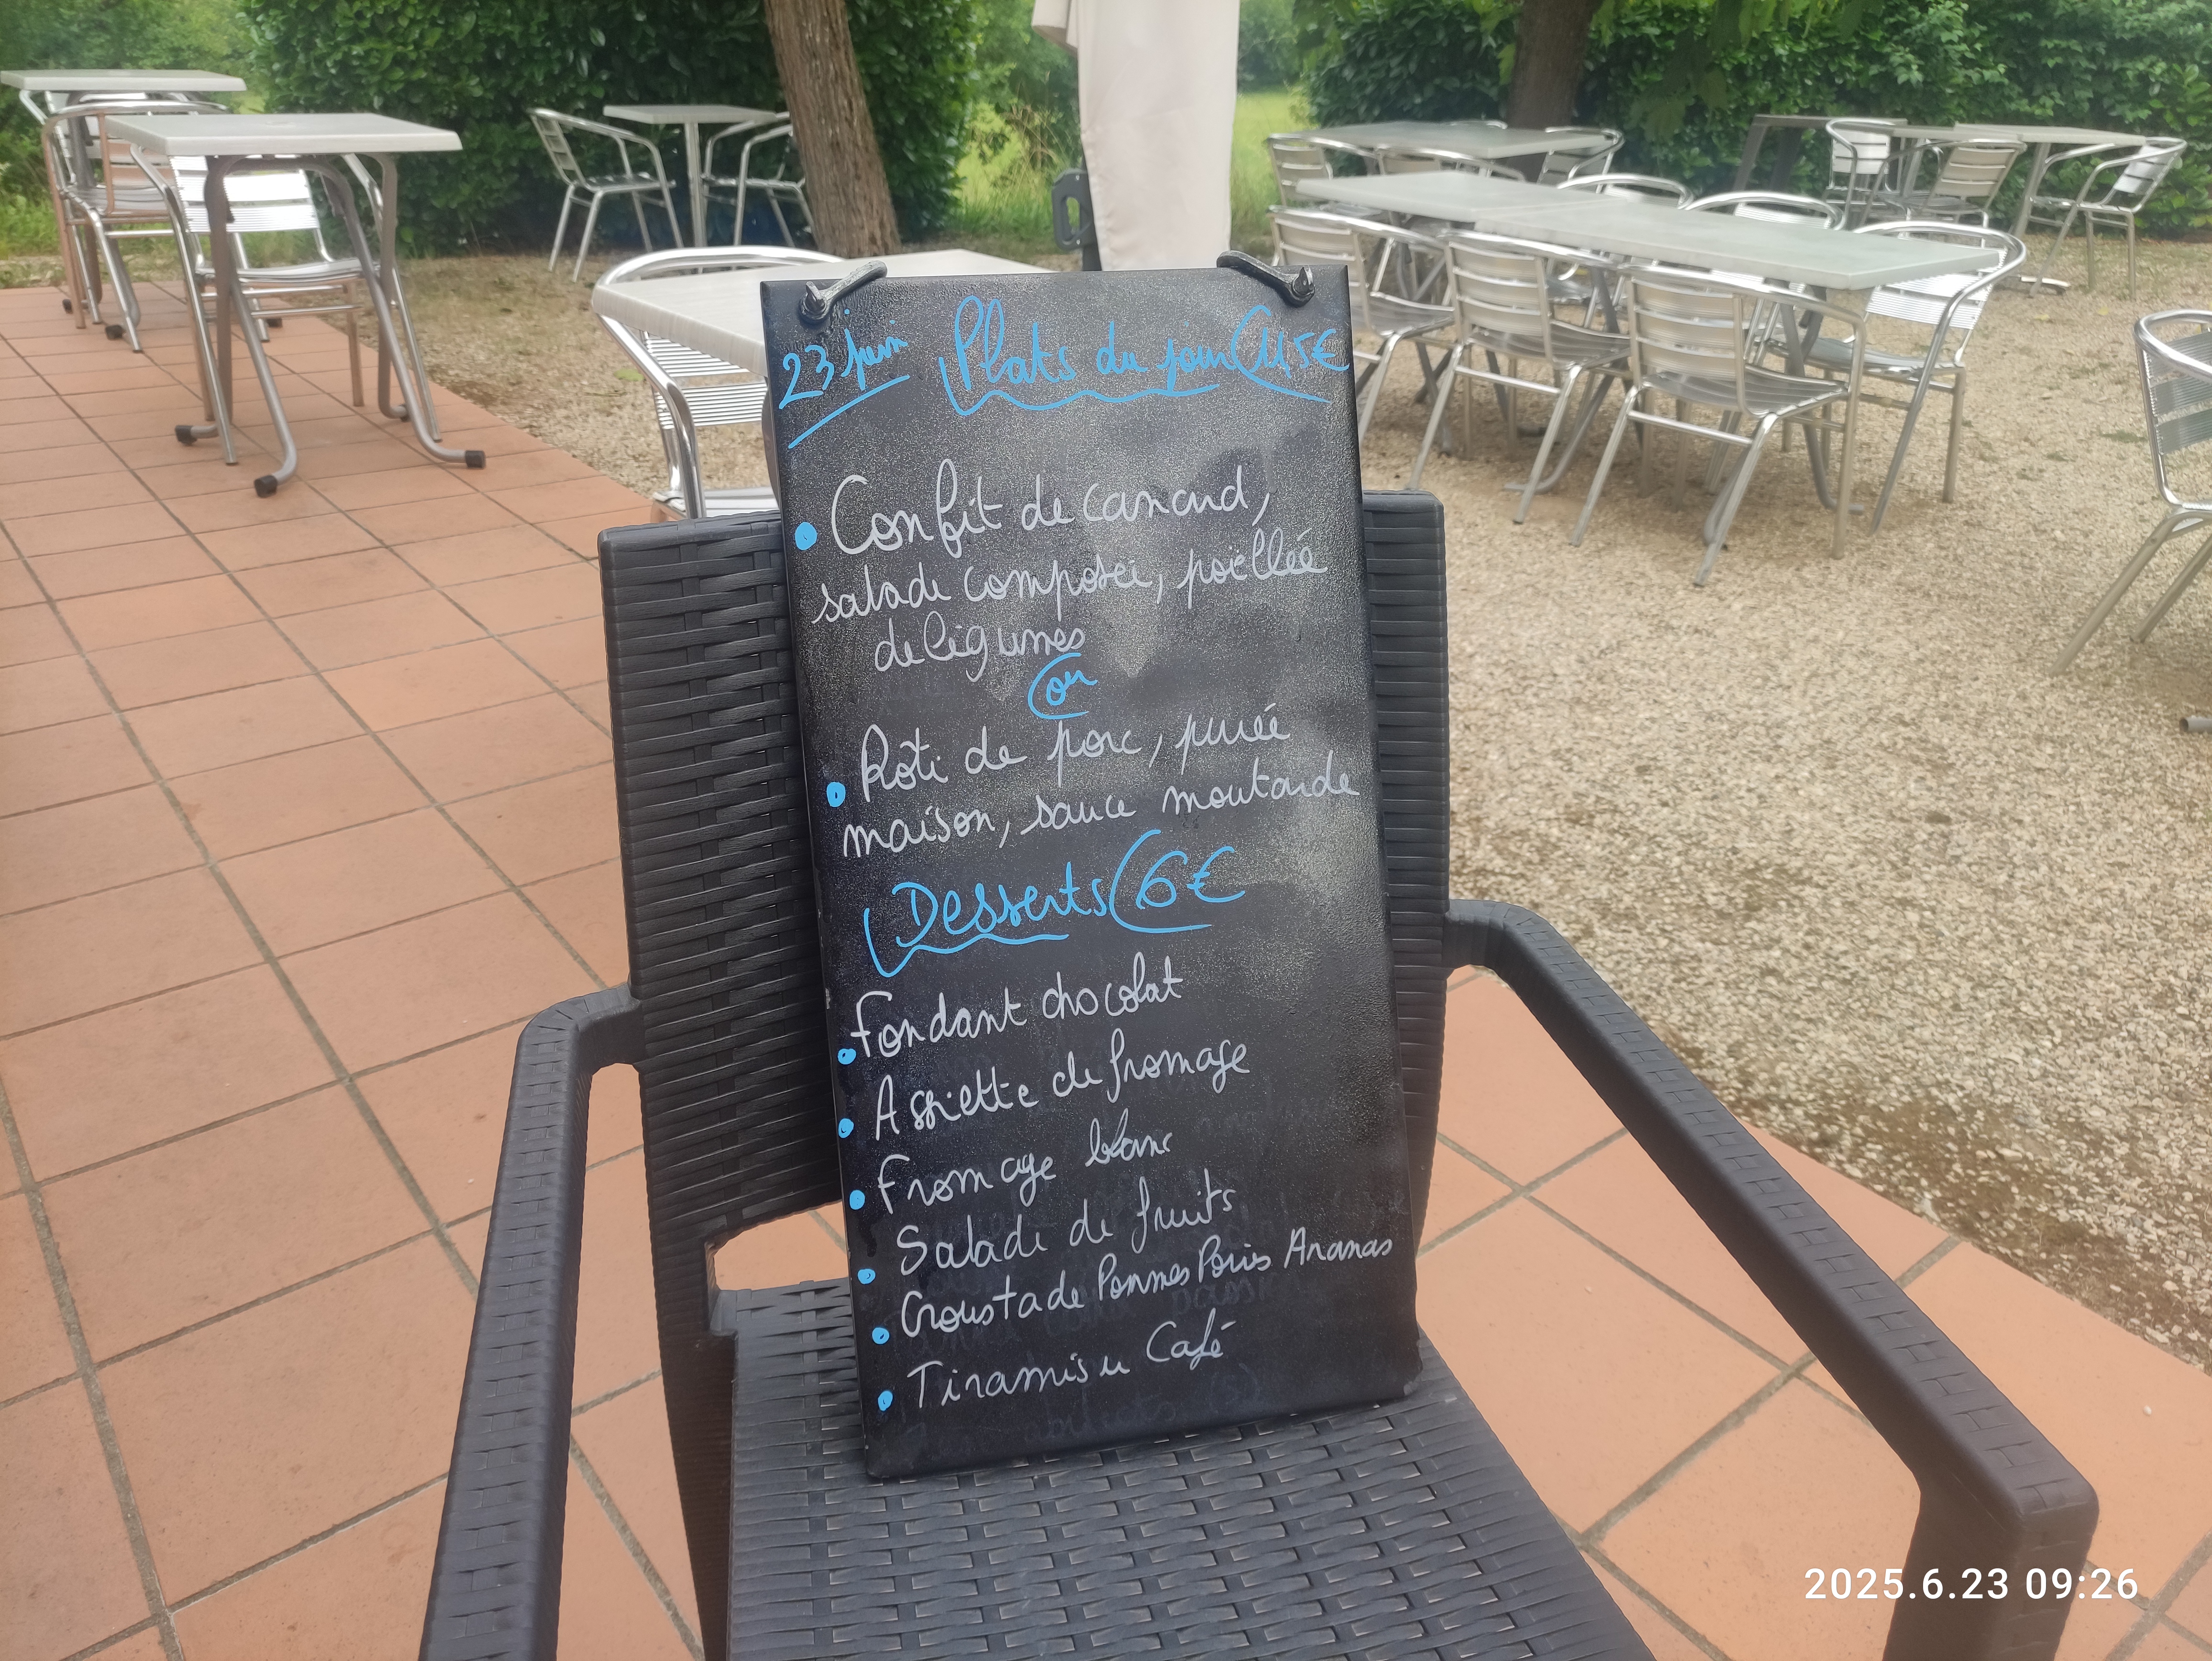 23 juin Plats du jour 11,5€
Confit de canard,
salade composée, poëllée
de légumes
ou
Rôti de porc, purée
maison, sauce moutarde
Desserts 6€
Fondant chocolat
Assiette de fromage
Fromage blanc
Salade de fruits
Croustade Pommes Poires Ananas
Tiramisu Café
2025.6.23 09:26